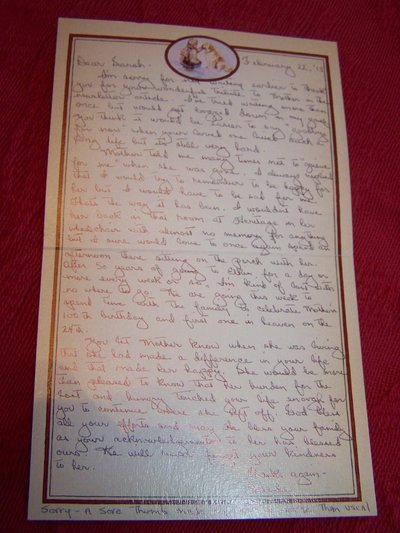 Dear Sarah - February 22, '13
I'm sorry for not writing earlier to thank
you for your wonderful tribute to Mother in the
newsletter article. I've tried writing more than
once but would get bogged down in my grief.
You think it would be easier to say goodbye
for now when your loved one lived such a
long life but it's still very hard.
Mother told me many times not to "grieve
for me" when she was gone. I always replied
that I would try to remember to be happy for
her but I would have to be sad for me.
That's the way it has been. I wouldn't have
her back in that room at Heritage in her
wheelchair with almost no memory for anything
but I sure would love to once again spend an
afternoon there sitting on the porch with her.
After 50 years of going to for a day or
more every week or so, I'm kind of lost with
no where to go. We are going this week to
spend time with the family to celebrate Mother's
100th birthday and first one in heaven on the
24th.
You let Mother know when she was living
that she had made a difference in your life
and that made her happy. She would be more
than pleased to know that her burden for the
lost and hungry touched your life enough for
you to continue where she left off. God bless
all your efforts and may He bless your family
as your acknowledgment to her has blessed
ours. We will never forget your kindness
to her.
Thanks again -
Sorry - A Sore Thumb than usual